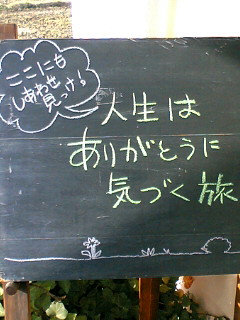 ここにも
しあわせ
見っけ!
人生は
ありがとうに
気づく旅